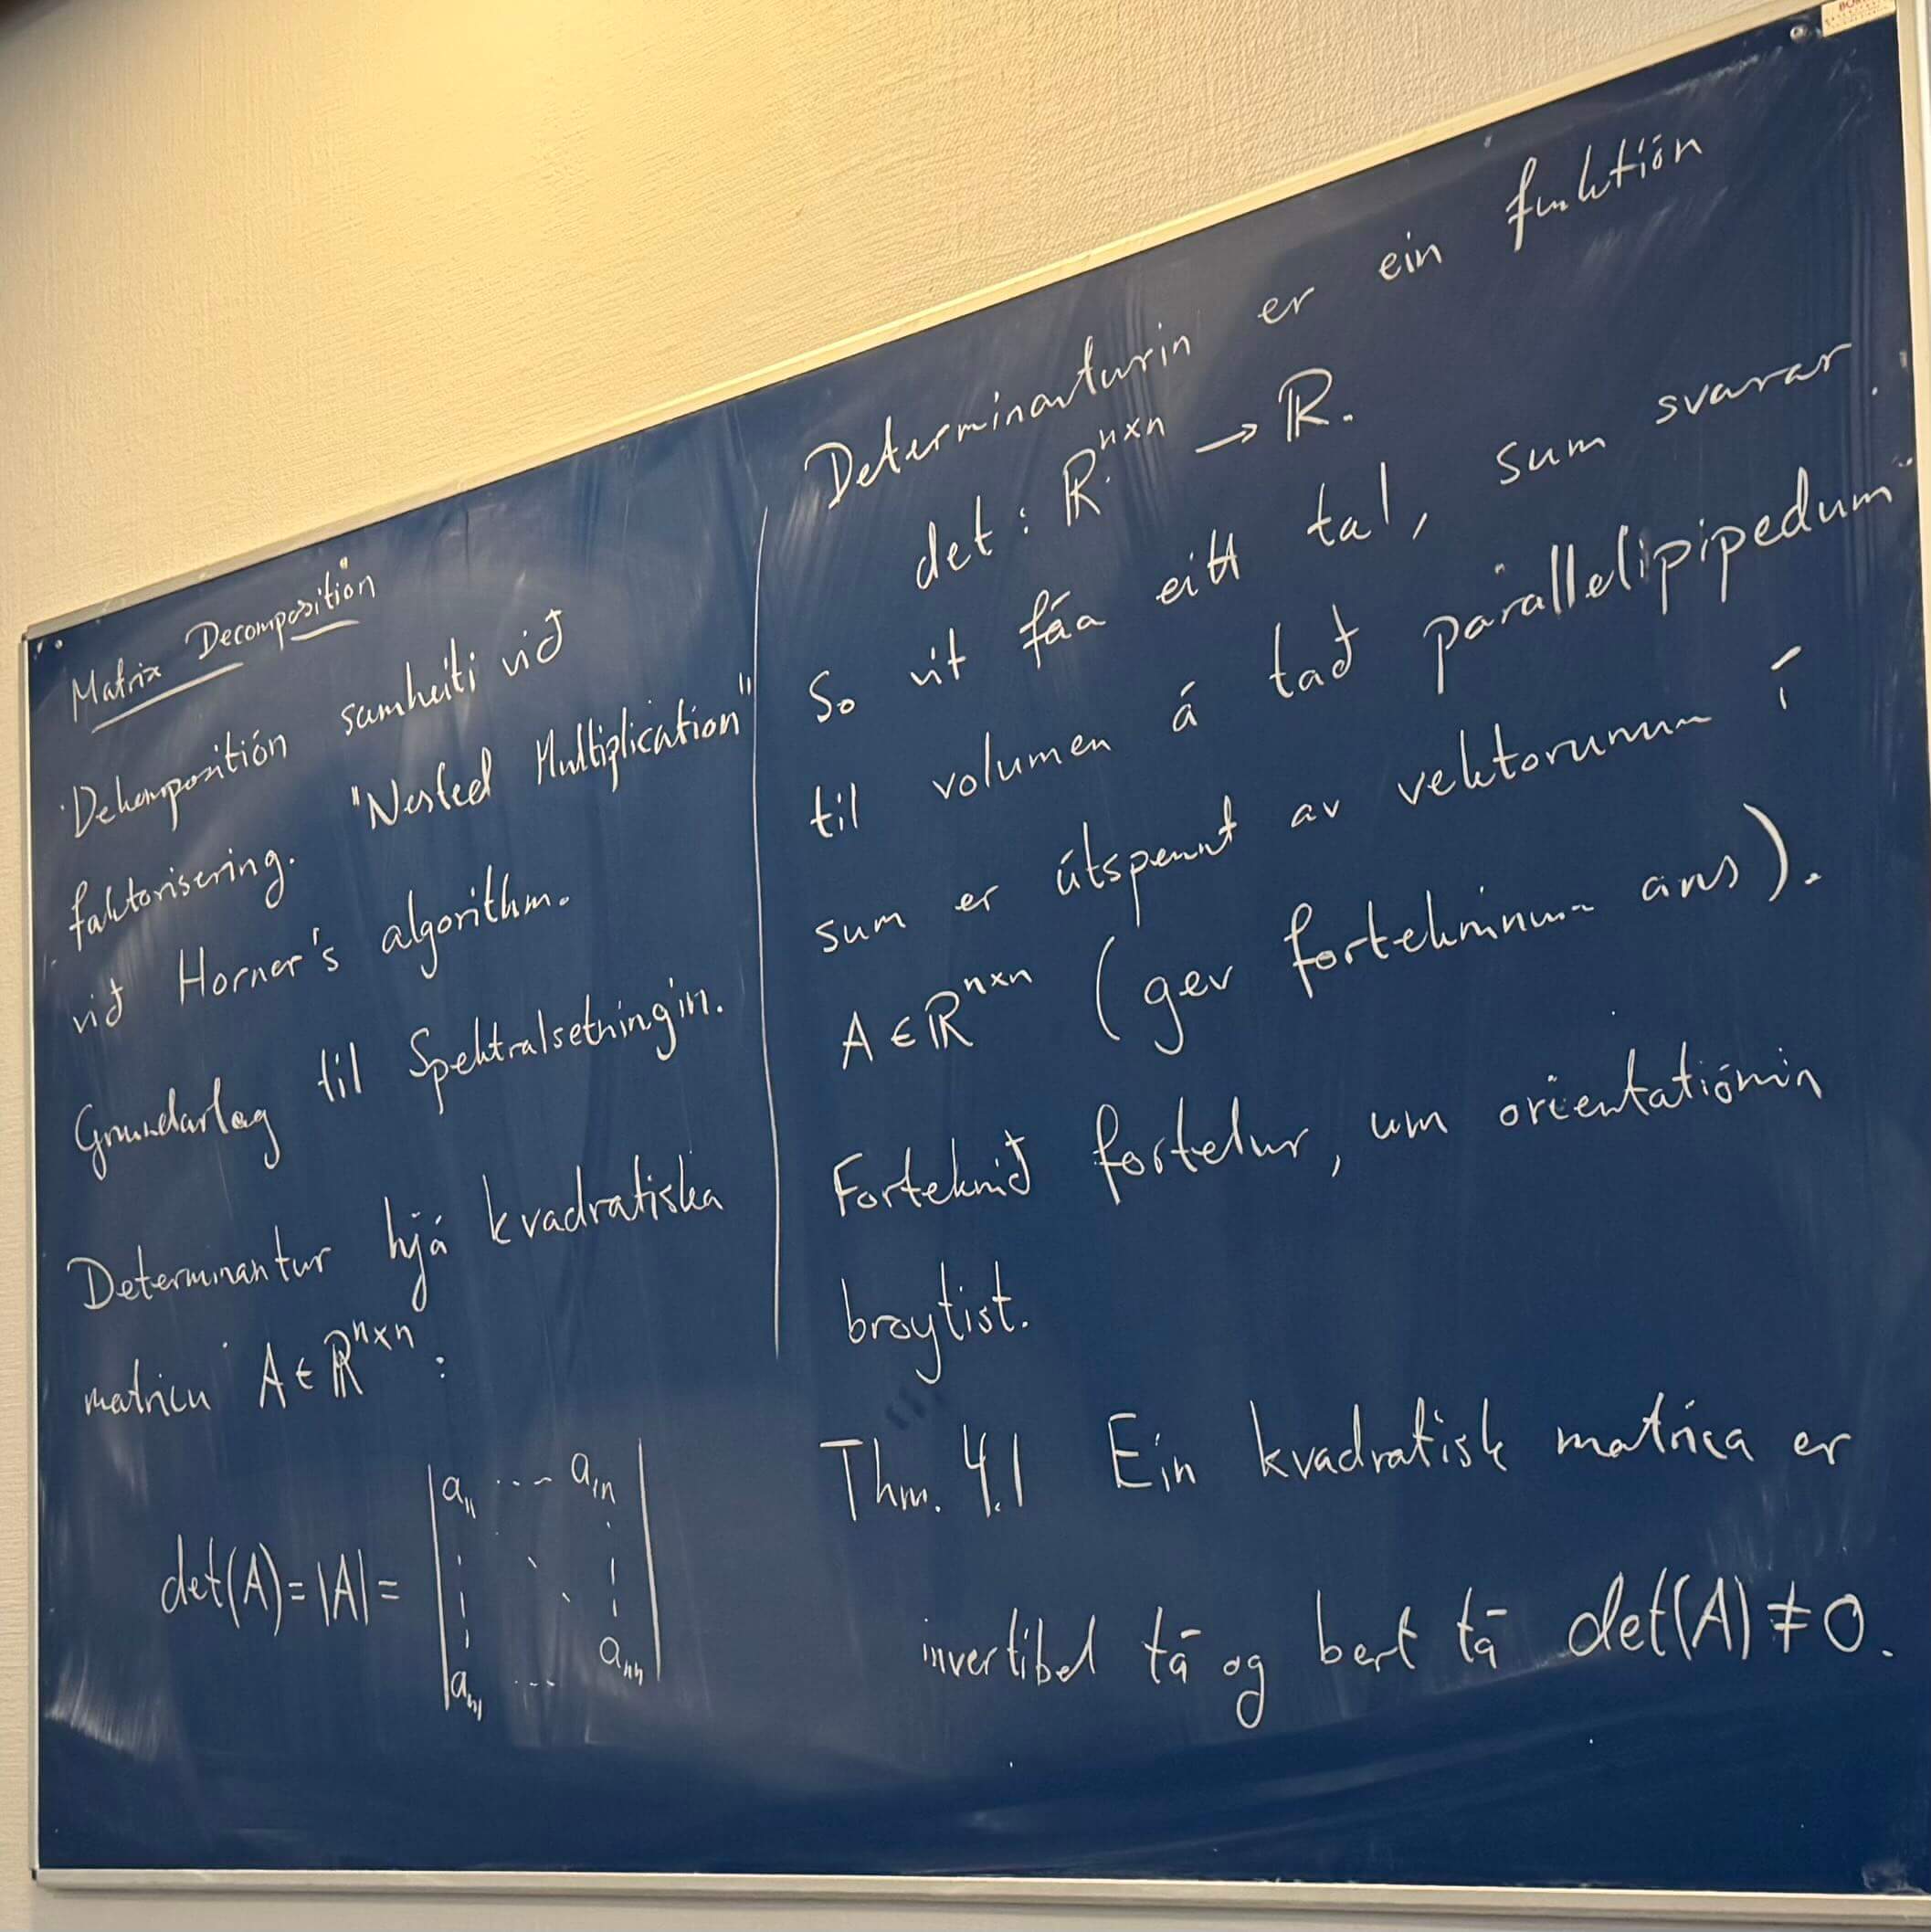 Matrix Decomposition
Dekompositión samheiti við
faktorisering. "Nested Multiplication"
við Horner's algorithm.
Grundarlag til Spektralsetningin.
Determinantur hjá kvadratiska
matricu A ∈ ℝⁿˣⁿ:
det(A) = |A| = | a₁₁ ... a₁ₙ
⋮ ⋱ ⋮
aₙ₁ ... aₙₙ |
Determinanturin er ein funktión
det : ℝⁿˣⁿ → ℝ.
So vit fáa eitt tal, sum svarar
til volumen á tað parallelipipedum
sum er útspennt av vektorunum í
A ∈ ℝⁿˣⁿ (gev fortekninum ans).
Forteknið fortelur, um orientatiónin
broytist.
Thm. 4.1 Ein kvadratisk matrica er
invertibel tá og bert tá det(A) ≠ 0.